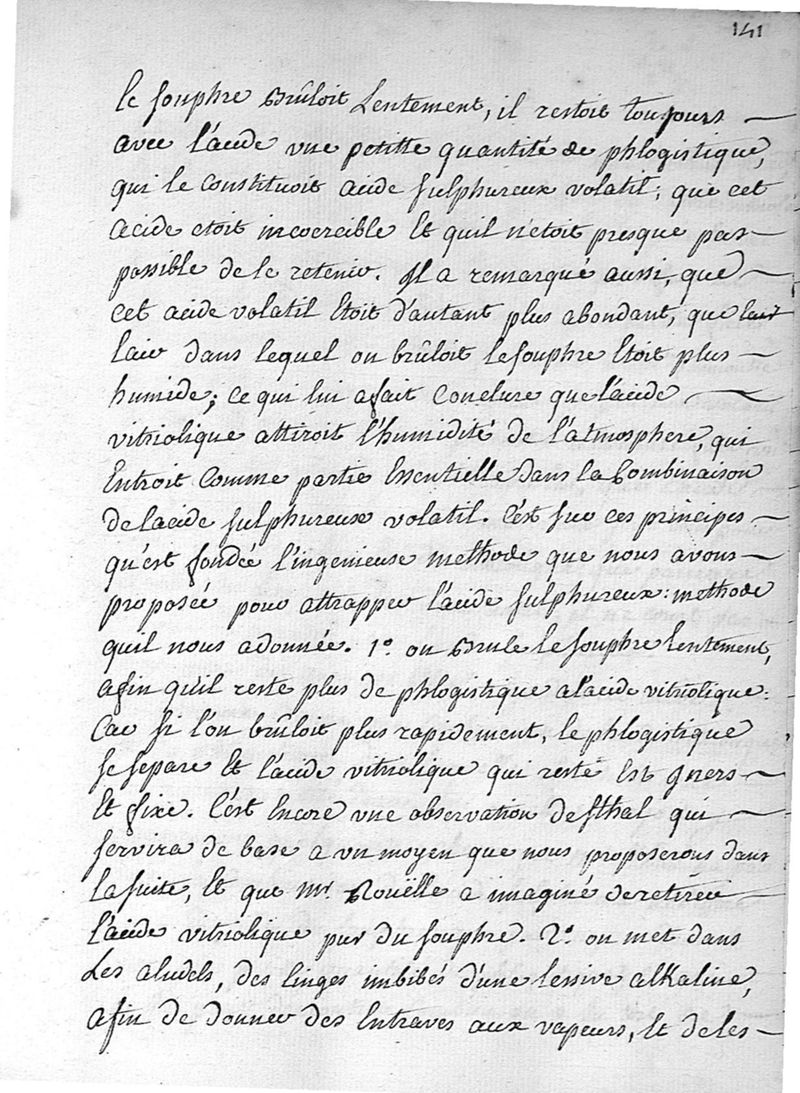 141
le souphre Brûloit Lentement, il restoit toujours
avec l'acide vne petitte quantité de phlogistique,
qui le Constituoit acide sulphureux volatil; que cet
acide etoit incoercible Et quil n'etoit presque pas
possible de le retenir. Il a remarqué aussi, que
cet acide volatil Etoit d'autant plus abondant, que
l'air dans lequel on brûloit le souphre Etoit plus
humide; ce qui lui a fait Conclure que l'acide
vitriolique attiroit l'humidité de l'atmosphere, qui
Entroit Comme partie Essentielle dans la Combinaison
de lacide sulphureux volatil. C'est sur ces principes
qu'est fondée l'ingenieuse methode que nous avons
proposée pour attrapper l'acide sulphureux: methode
quil nous a donnée. 1º. on Brule le souphre lentement,
afin qu'il reste plus de phlogistique a l'acide vitriolique:
Car si l'on brûloit plus rapidement, le phlogistique
se separe Et l'acide vitriolique qui reste Est
Et fixe. C'est Encore vne observation de sthal qui
servira de base a vn moyen que nous proposerons dans
la suite, Et que mr. Roüelle a imaginé de retirer
l'acide vitriolique pur du souphre. 2º. on met dans
Les aludels, des linges imbibés d'une lessive alkaline,
afin de donner des Entraves aux vapeurs, Et de les